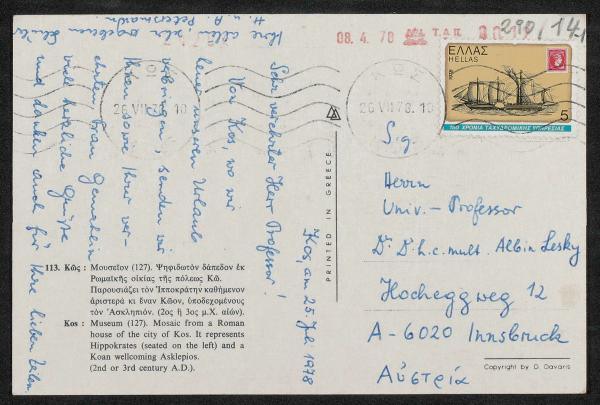 Kos, am 25. Juli 1978
Sehr verehrter Herr Professor!
Von Kos, wo wir
unseren Urlaub
verbringen, senden wir
Ihnen sowie Ihrer ver-
ehrten Frau Gemahlin
viele herzliche Grüße
und danken auch für Ihre lieben Zeilen
Ihre
H. u. A. Petersmann
08. 4. 78 Τ.Α.Π.
290,/14
ΚΩΣ
26 VII 78. 10
26 VII 78. 10
ΕΛΛΑΣ
HELLAS
1978
5
150 ΧΡΟΝΙΑ ΤΑΧΥΔΡΟΜΙΚΗΣ ΥΠΗΡΕΣΙΑΣ
PRINTED IN GREECE
S.g.
Herrn
Univ. - Professor
Dr. Dr. h.c. mult. Albin Lesky
Hocheggweg 12
A-6020 Innsbruck
Αὐστρία
113. Κῶς : Μουσεῖον (127). Ψηφιδωτὸν δάπεδον ἐκ
Ρωμαϊκῆς οἰκίας τῆς πόλεως Κῶ.
Παρουσιάζει τὸν Ἱπποκράτην καθήμενον
ἀριστερὰ κι ἕναν Κῶον, ὑποδεχομένους
τὸν Ἀσκληπιόν. (2ος ἢ 3ος μ.Χ. αἰών).
Kos : Museum (127). Mosaic from a Roman
house of the city of Kos. It represents
Hippokrates (seated on the left) and a
Koan wellcoming Asklepios.
(2nd or 3rd century A.D.).
Copyright by D. Davaris